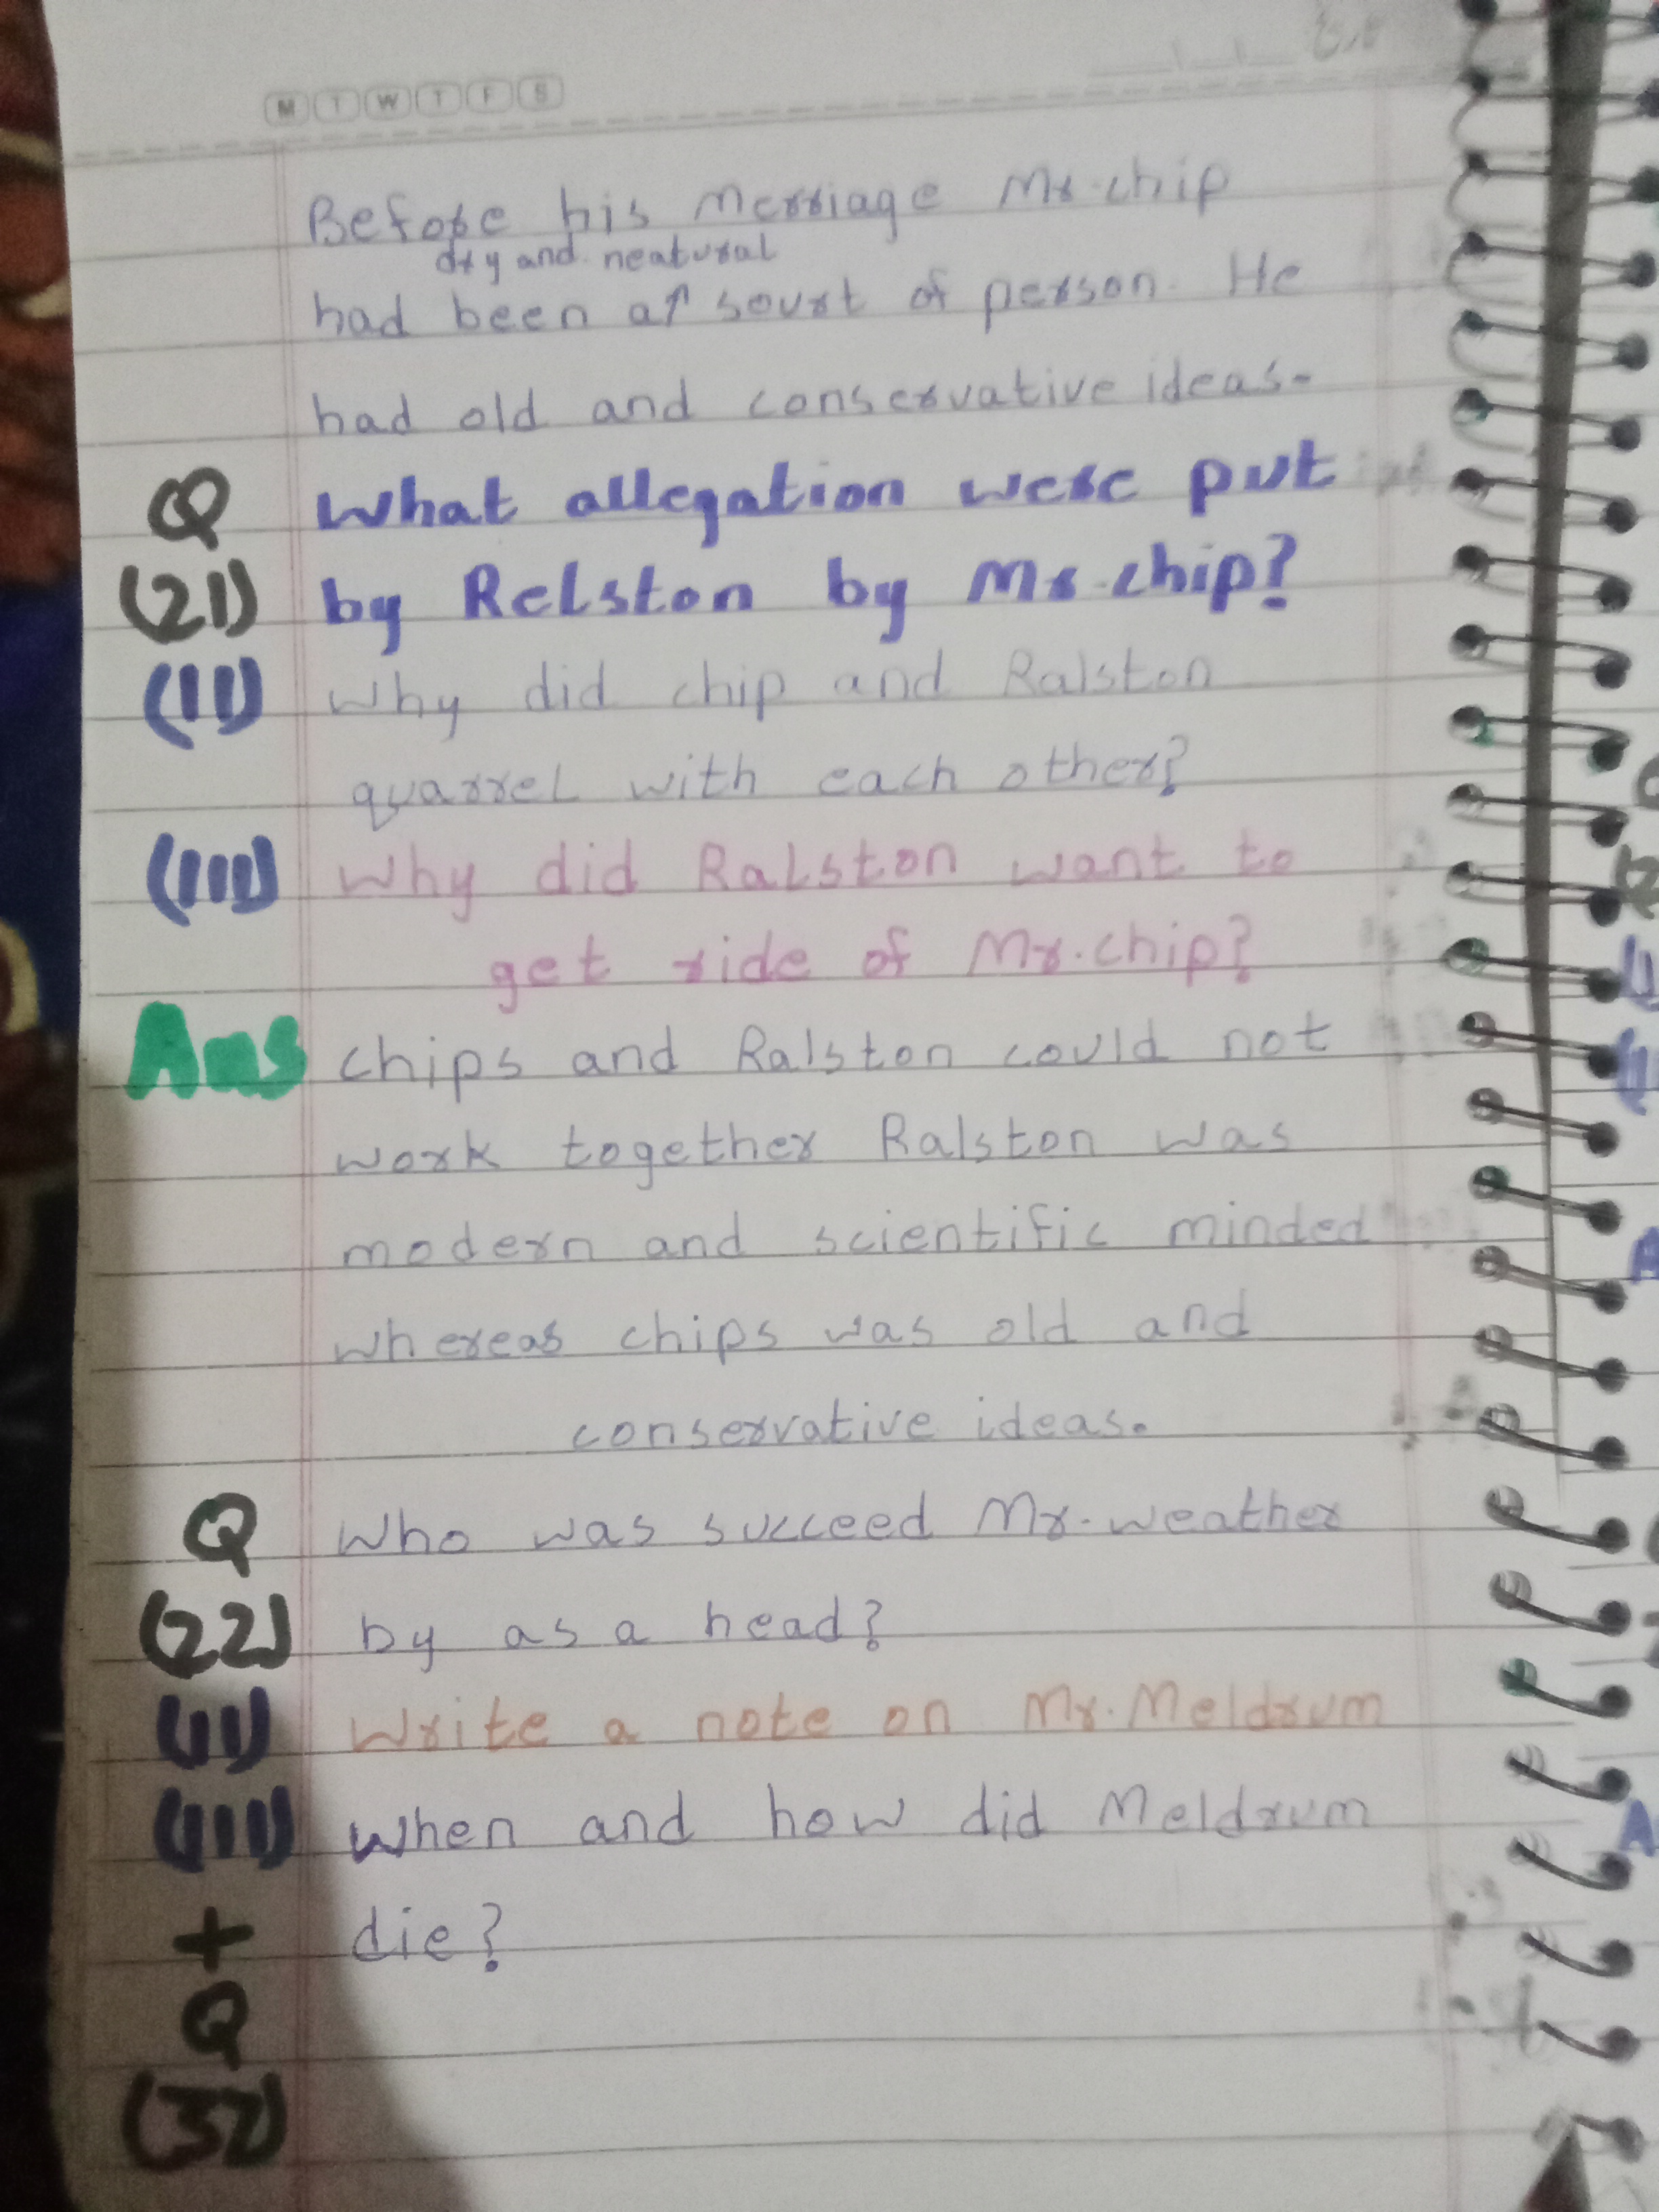 M T W T F S
Before his Merriage Mr.chip
dry and neatural
had been a↑ sourt of person. He
had old and conservative ideas.
Q What allegation were put
(21) by Relston by Mr.chip?
(11) Why did chip and Ralston
quarrel with each other?
(111) Why did Ralston want to
get ride of Mr.chip?
Ans chips and Ralston could not
work together Ralston was
modern and scientific minded
whereas chips was old and
conservative ideas.
Q Who was succeed Mr.weather
(22) by as a head?
(11) Write a note on Mr.Meldrum
(111) When and how did Meldrum
+ die?
Q
(32)